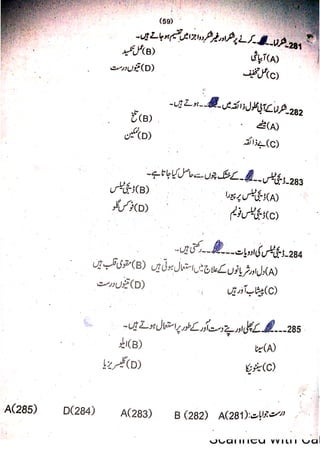 (59)
281- کرنے پر شکر اور غیر شکر دو اجزاء میں تقسیم ہو جاتے ہیں۔
(A) آب پاشی (B) عمل تکسید
(C) عمل تخفیف (D) تینوں درست
282- کے آبی محلول ذائقہ میں ۔۔۔ ہوتے ہیں۔
(A) میٹھے (B) تلخ
(C) بے ذائقہ (D) نمکین
283- ڈیجی ٹیلس ۔۔۔ کے خشک پتوں سے حاصل کیا جاتا ہے۔
(A) ڈیجی ٹیلس پرپیورا (B) ڈیجی ٹیلس
(C) ڈیجی ٹیلس (D) فوکس گلو
284- ڈیجی ٹیلس کی ادویات ۔۔۔ رکھتی ہیں۔
(A) دل اور شریانوں کے علاج میں استعمال ہوتی ہیں (B) مقوی قلب ہیں
(C) پیشاب آور ہیں (D) تینوں درست
285- ۔۔۔ کے پھلی اور پتے دست آور کے طور پر استعمال ہوتے ہیں۔
(A) سینا (B) ایلو
(C) (D)
درست جوابات: A(281) B (282) A(283) D(284) A(285)
Scanned with Ca